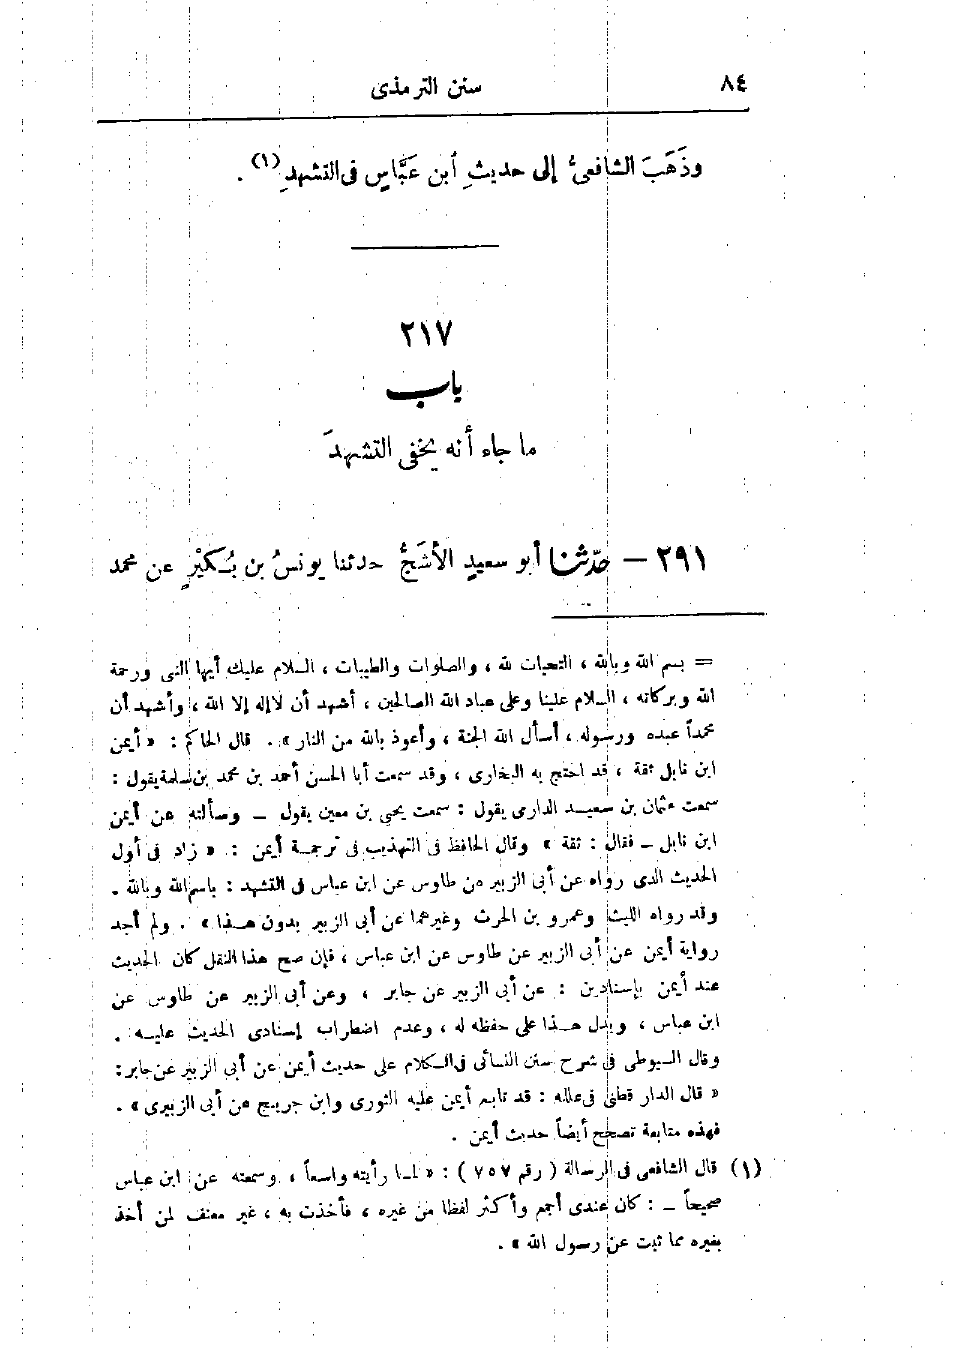 ٨٤
سنن الترمذى
وذَهَبَ الشافعىُّ إلى حديثِ أبن عَبَّاسٍ فى التشهدِ (١) .
٢١٧
باب
ما جاء أنه يخفى التشهدَ
٢٩١ – حدّثنا أبو سعيدٍ الأشَجُّ حدثنا يونسُ بن بُكَيْرٍ عن محمد
= بسم الله وبالله ، التحيات لله ، والصلوات والطيبات ، السلام عليك أيها النبى ورحمة
الله وبركاته ، السلام علينا وعلى عباد الله الصالحين ، أشهد أن لا إله إلا الله ، وأشهد أن
محمداً عبده ورسوله ، أسأل الله الجنة ، وأعوذ بالله من النار » . قال الحاكم : « أيمن
ابن نابل ثقة ، قد احتج به البخارى ، وقد سمعت أبا الحسن أحمد بن محمد بن سلمة يقول :
سمعت عثمان بن سعيد الدارى يقول : سمعت يحيى بن معين يقول – وسألته عن أيمن
ابن نابل – فقال : ثقة » وقال الحافظ فى التهذيب فى ترجمة أيمن : « زاد فى أول
الحديث الذى رواه عن أبى الزبير من طاوس عن ابن عباس فى التشهد : باسم الله وبالله .
وقد رواه الليث وعمرو بن الحرث وغيرهما عن أبى الزبير بدون هذا » . ولم أجد
رواية أيمن عن أبى الزبير عن طاوس عن ابن عباس ، فإن صح هذا النقل كان الحديث
عند أيمن بإسنادين : عن أبى الزبير عن جابر ، وعن أبى الزبير عن طاوس عن
ابن عباس ، ويدل هذا على حفظه له ، وعدم اضطراب إسنادى الحديث عليه .
وقال السيوطى فى شرح سنن النسائى فى الكلام على حديث أيمن عن أبى الزبير عن جابر :
« قال الدار قطنى فى علله : قد تابع أيمن عليه الثورى وابن جريج عن أبى الزبيرى » .
فهذه متابعة تصحح أيضاً حديث أيمن .
(١) قال الشافعى فى الرسالة ( رقم ٧٥٧ ) : « لما رأيته واسعاً ، وسمعته عن ابن عباس
صحيحاً – : كان عندى أجمع وأكثر لفظا من غيره ، فأخذت به ، غير معنف لمن أخذ
بغيره مما ثبت عن رسول الله » .